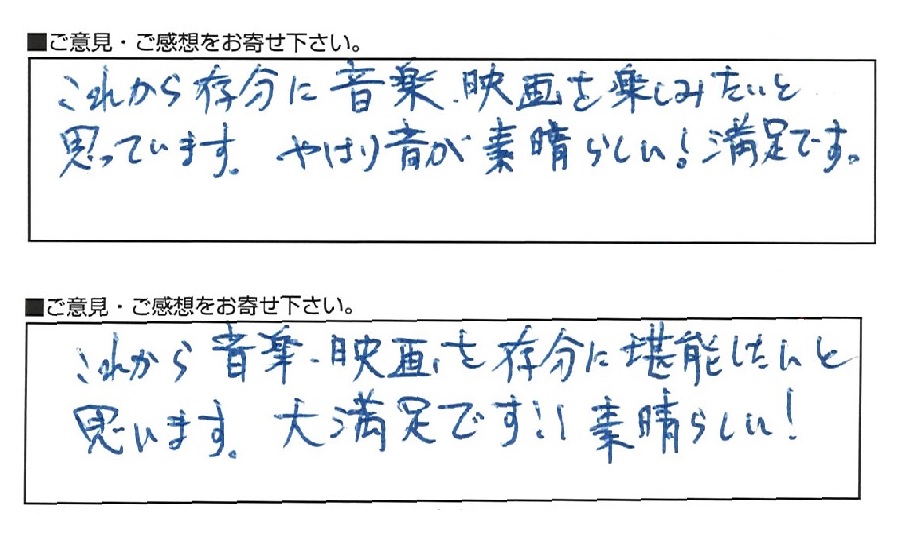 ■ご意見・ご感想をお寄せ下さい。
これから存分に音楽、映画を楽しみたいと
思っています。やはり音が素晴らしい!満足です。
■ご意見・ご感想をお寄せ下さい。
これから音楽、映画を存分に堪能したいと
思います。大満足です!!素晴らしい!